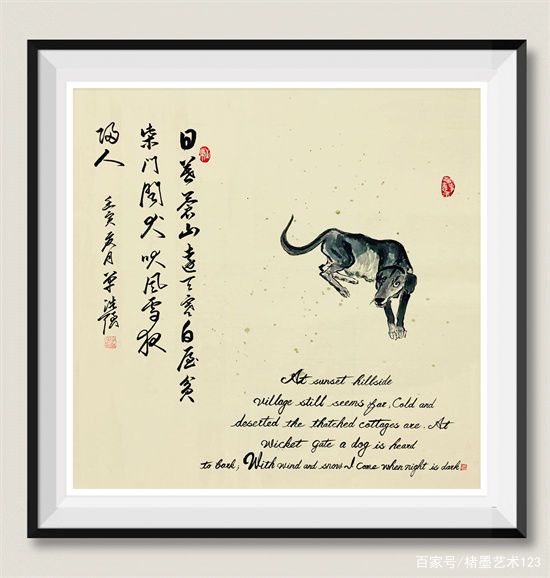 日暮苍山远天寒白屋贫
柴门闻犬吠风雪夜
归人
壬寅亥月
At sunset hillside
village still seems far, Cold and
deserted the thatched cottages are. At
Wicket gate a dog is heard
to bark, With wind and snow I come when night is dark
百家号/楮墨艺术123